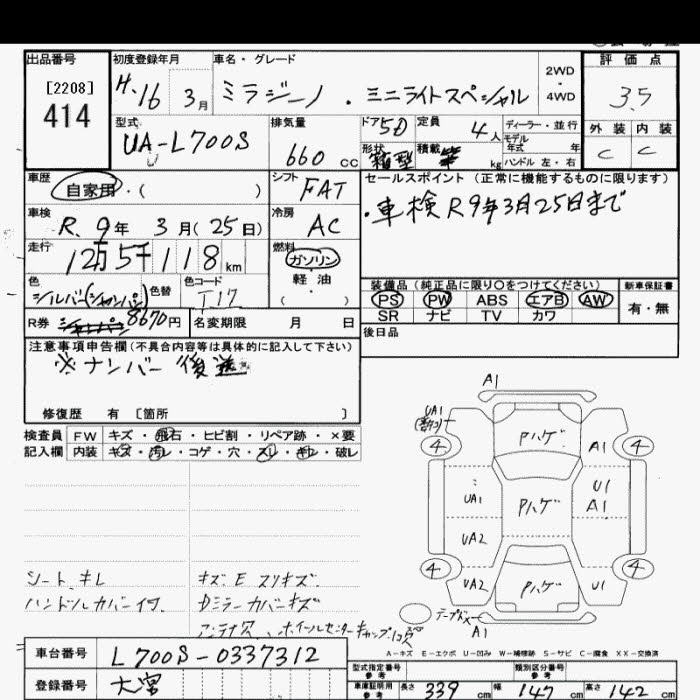 出品番号 初度登録年月 車名・グレード 2WD・4WD 評価点
[2208]
414
H.16 3月 ミラジーノ . ミニライトスペシャル 3.5
型式 UA-L700S 排気量 660 cc ドア 5D 定員 4人 ディーラー・並行 外装 内装
モデル年式 年 C C
形状 箱型 積載 kg ハンドル 左・右
車歴 自家用・( ) シフト FAT セールスポイント(正常に機能するものに限ります)
車検 R.9年 3月(25日) 冷房 AC ・車検R9年3月25日まで
走行 12万5千118km 燃料 ガソリン・軽油・( )
色 シルバー(シャンパン) 色替 色コード T17 装備品(純正品に限り〇をつけてください) 新車保証書
PS PW ABS エアB AW 有・無
SR ナビ TV カワ
R券 8670円 名変期限 月 日 後日品
注意事項申告欄(不具合内容等は具体的に記入して下さい)
※ナンバー後送
修復歴 有 〔箇所 〕
検査員 FW キズ・飛石・ヒビ割・リペア跡・×要
記入欄 内装 キズ・汚レ・コゲ・穴・スレ・キレ・破レ
A1
UA1
4 Pハゲ A1 4
UA1 Pハゲ U1 A1
UA2
4 UA2 Pハゲ U1 4
シートキレ キズ E スリキズ
ハンドルカバー付 Dミラーカバーキズ
A1
A-キズ E-エクボ U-凹み W-補修跡 S-サビ C-腐食 XX-交換済
車台番号 L700S-0337312
登録番号 型式指定番号 参考 類別区分番号 参考
車庫証明用 参考 長さ 339cm 幅 147cm 高さ 142cm